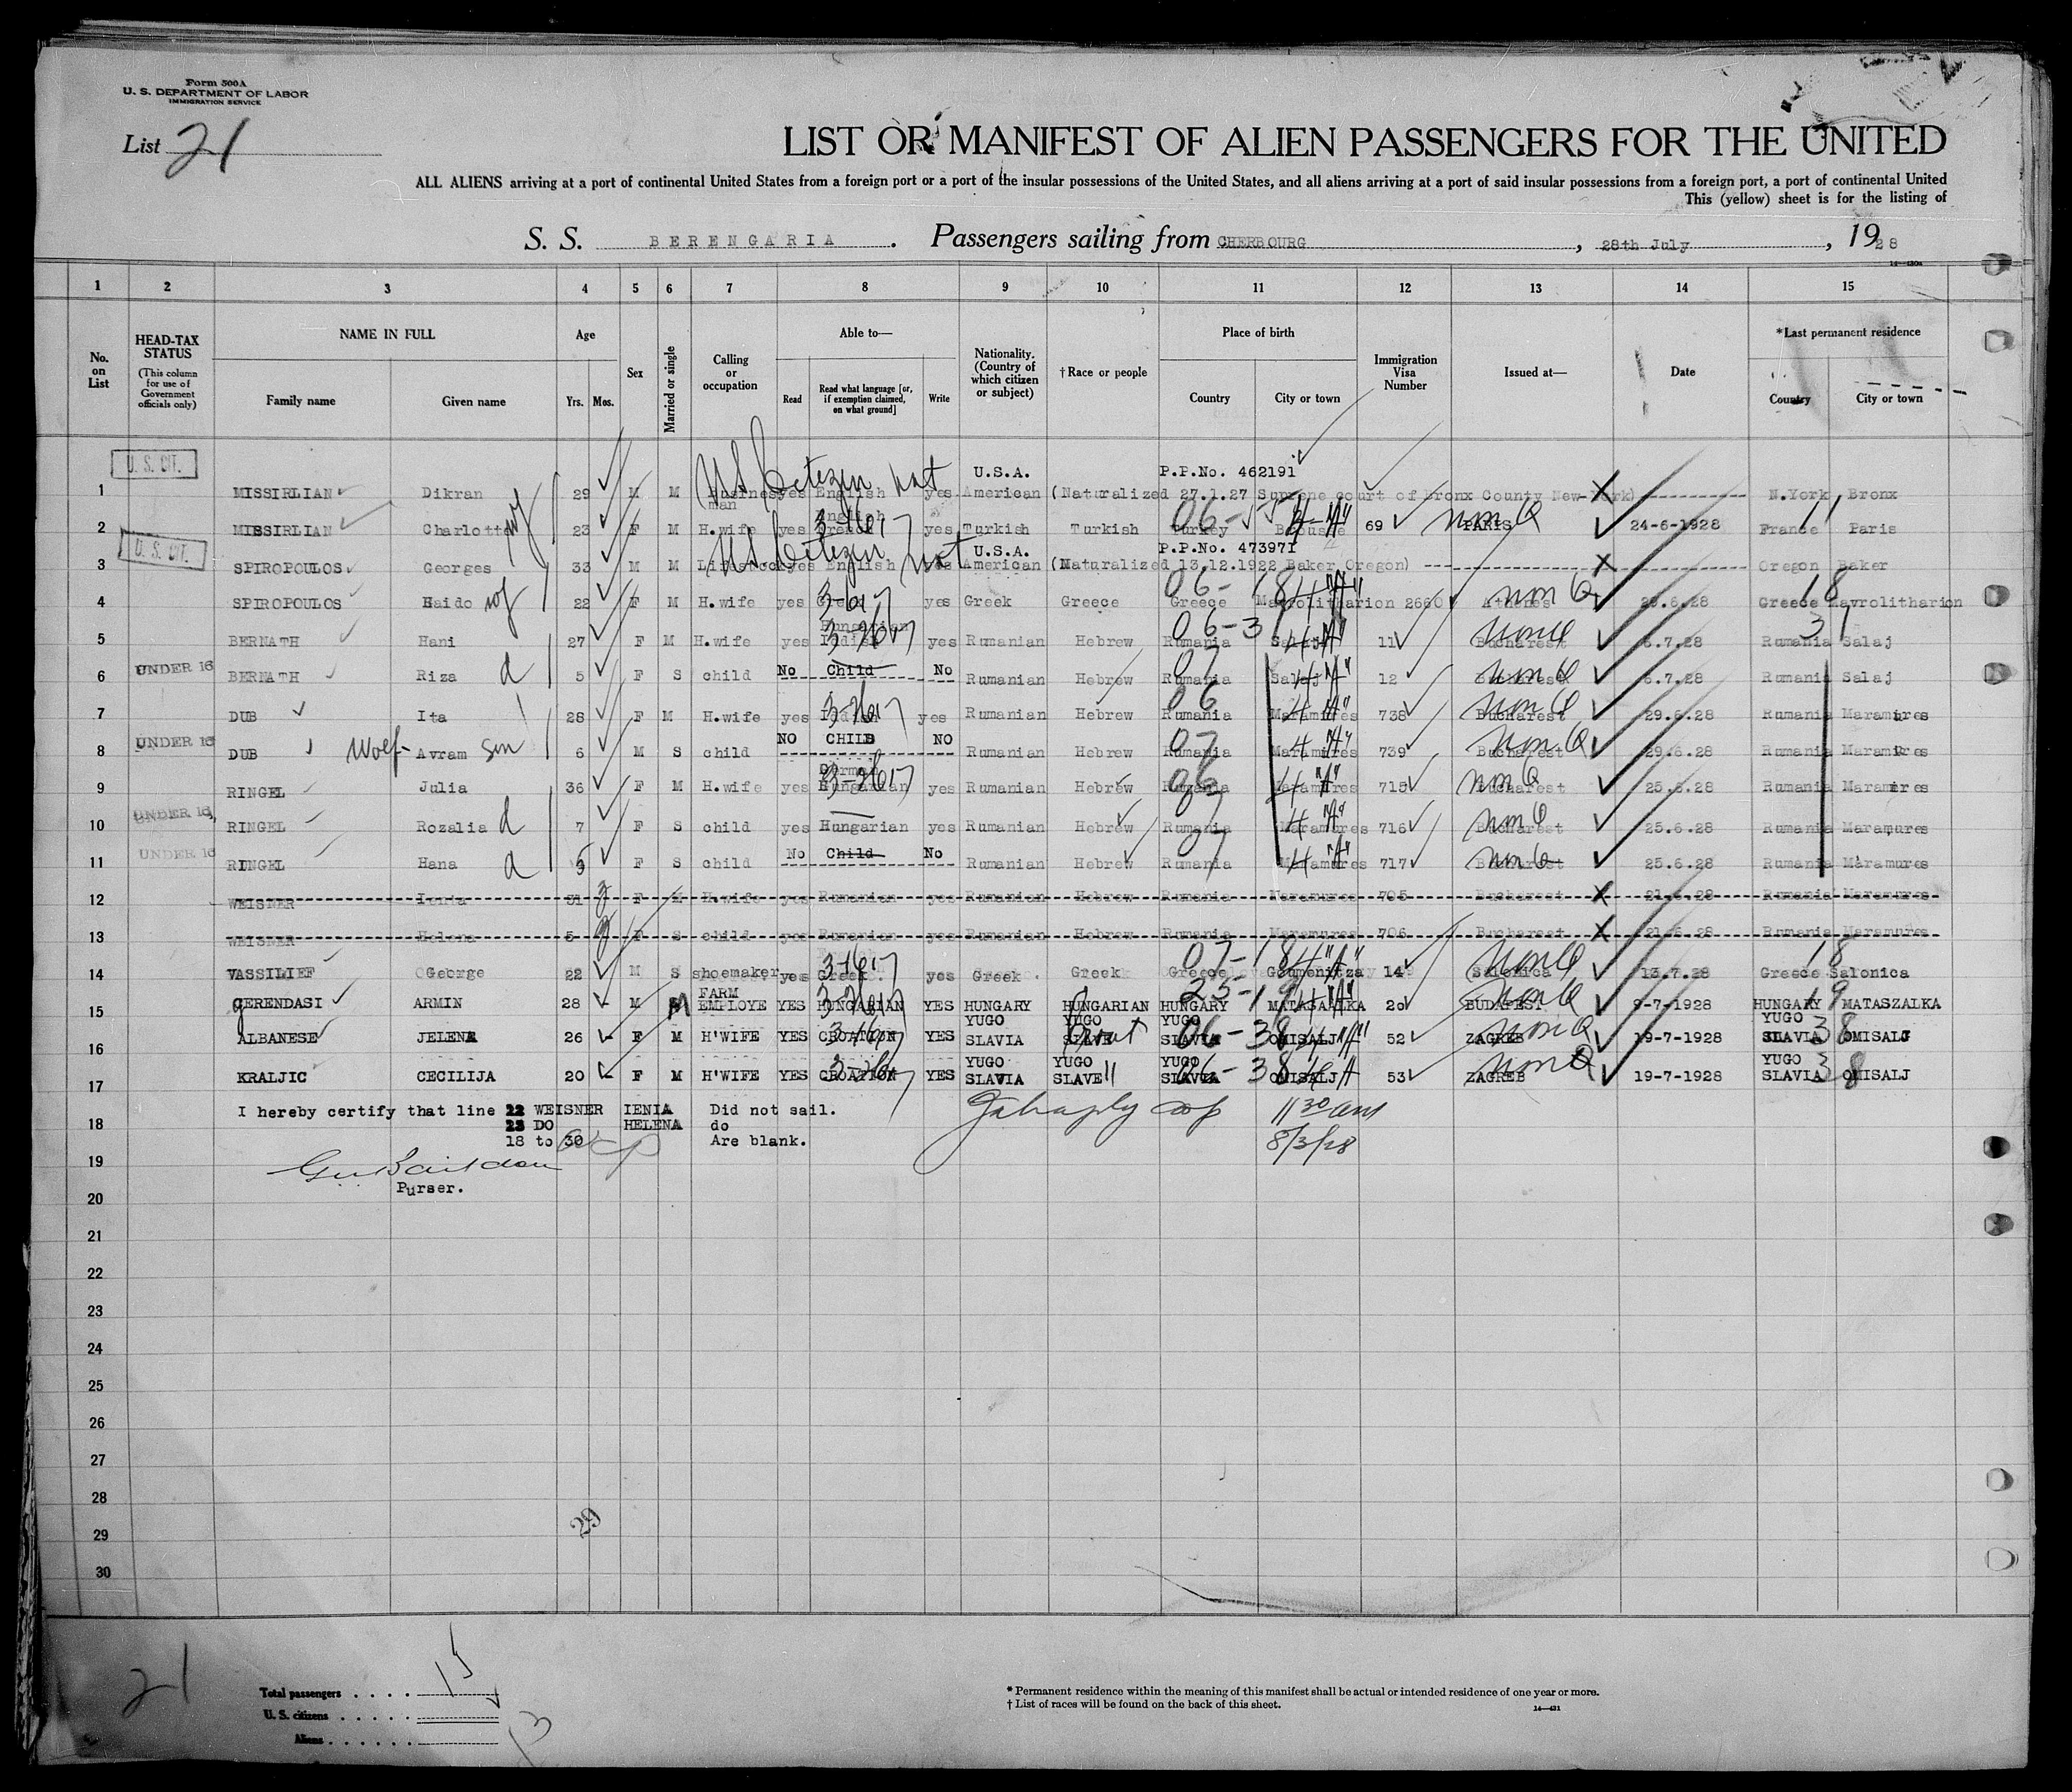 Form 500A
U. S. DEPARTMENT OF LABOR
IMMIGRATION SERVICE
List 21
LIST OR MANIFEST OF ALIEN PASSENGERS FOR THE UNITED
ALL ALIENS arriving at a port of continental United States from a foreign port or a port of the insular possessions of the United States, and all aliens arriving at a port of said insular possessions from a foreign port, a port of continental United
This (yellow) sheet is for the listing of
S. S. BERENGARIA . Passengers sailing from CHERBOURG , 28th July , 1928
1 2 3 4 5 6 7 8 9 10 11 12 13 14 15
No. on List
HEAD-TAX STATUS (This column for use of Government officials only)
NAME IN FULL Family name Given name
Age Yrs. Mos.
Sex
Married or single
Calling or occupation
Able to— Read Read what language [or, if exemption claimed, on what ground] Write
Nationality. (Country of which citizen or subject)
†Race or people
Place of birth Country City or town
Immigration Visa Number
Issued at—
Date
*Last permanent residence Country City or town
U. S. CIT. U.S. Citizen nat U.S.A. P.P.No. 462191
1 MISSIRLIAN Dikran 29 M M Business man yes English yes American (Naturalized 27.1.27 Supreme court of Bronx County New-York) N.York Bronx
2 MISSIRLIAN Charlotte wf 23 F M H.wife yes English French yes Turkish Turkish Turkey 69 PARIS non Q 24-6-1928 France Paris
U. S. CIT. U.S. Citizen nat U.S.A. P.P.No. 473971
3 SPIROPOULOS Georges 33 M M yes English yes American (Naturalized 13.12.1922 Baker Oregon) Oregon Baker
4 SPIROPOULOS Haido wf 22 F M H.wife yes Greek yes Greek Greece Greece Mavrolitharion 2660 Athenes non Q 29.6.28 Greece Mavrolitharion 06-18 18
5 BERNATH Hani 27 F M H.wife yes yes Rumanian Hebrew Rumania Salaj 11 Bucharest non Q 6.7.28 Rumania Salaj 06-31 31
UNDER 16
6 BERNATH Riza d 5 F S child No Child No Rumanian Hebrew Rumania Salaj 12 Bucharest non Q 6.7.28 Rumania Salaj 07
7 DUB Ita 28 F M H.wife yes yes Rumanian Hebrew Rumania Maramures 738 Bucharest non Q 29.6.28 Rumania Maramures 06
UNDER 16
8 DUB Wolf- Avram son 6 M S child NO CHILD NO Rumanian Hebrew Rumania Maramures 739 Bucharest non Q 29.6.28 Rumania Maramures 07
9 RINGEL Julia 36 F M H.wife yes German Hungarian yes Rumanian Hebrew Rumania Maramures 715 Bucharest non Q 25.6.28 Rumania Maramures 06
UNDER 16
10 RINGEL Rozalia d 7 F S child yes Hungarian yes Rumanian Hebrew Rumania Maramures 716 Bucharest non Q 25.6.28 Rumania Maramures 07
UNDER 16
11 RINGEL Hana d F S child No Child No Rumanian Hebrew Rumania Maramures 717 Bucharest non Q 25.6.28 Rumania Maramures 07
12 WEISNER Ienia 31 F M H.wife yes Rumanian yes Rumanian Hebrew Rumania Maramures 705 Bucharest 21.6.28 Rumania Maramures
13 WEISNER Helena 5 F S child yes Rumanian yes Rumanian Hebrew Rumania Maramures 706 Bucharest 21.6.28 Rumania Maramures
14 VASSILIEF George 22 M S shoemaker yes Greek yes Greek Greek Greece Goumenitza 14 Salonica non Q 13.7.28 Greece Salonica 07-18 18
15 GERENDASI ARMIN 28 M M FARM EMPLOYE YES HUNGARIAN YES HUNGARY HUNGARIAN HUNGARY MATASZALKA 20 BUDAPEST non Q 9-7-1928 HUNGARY MATASZALKA 25-19 19
16 ALBANESE JELENA 26 F M H'WIFE YES CROATION YES YUGO SLAVIA YUGO SLAVE YUGO SLAVIA OMISALJ 52 ZAGREB non Q 19-7-1928 YUGO SLAVIA OMISALJ 06-38 38
17 KRALJIC CECILIJA 20 F M H'WIFE YES CROATION YES YUGO SLAVIA YUGO SLAVE YUGO SLAVIA OMISALJ 53 ZAGREB non Q 19-7-1928 YUGO SLAVIA OMISALJ 06-38 38
I hereby certify that line 22 WEISNER IENIA Did not sail.
23 DO HELENA do
18 to 30 Are blank.
11 30 am
8/3/28
Purser.
18
19
20
21
22
23
24
25
26
27
28
29
30
29
21
Total passengers . . . . 15
U. S. citizens . . . . .
Aliens . . . . . . 13
* Permanent residence within the meaning of this manifest shall be actual or intended residence of one year or more.
† List of races will be found on the back of this sheet.
14—431